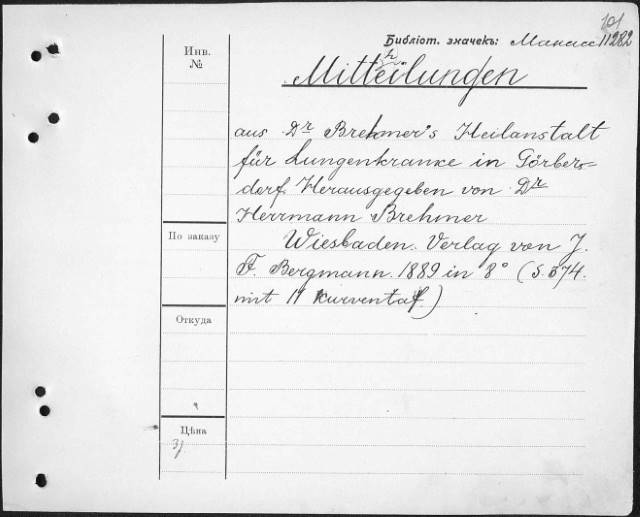 101
Библіот. значекъ: Манасс 11282
Инв.
№
Mittheilungen
aus Dr Brehmer's Heilanstalt
für Lungenkranke in Görbers=
dorf. Herausgegeben von Dr
Herrmann Brehmer
По заказу
Wiesbaden. Verlag von J.
F. Bergmann. 1889 in 8° (S. 374.
mit 11 kurventaf.)
Откуда
Цѣна